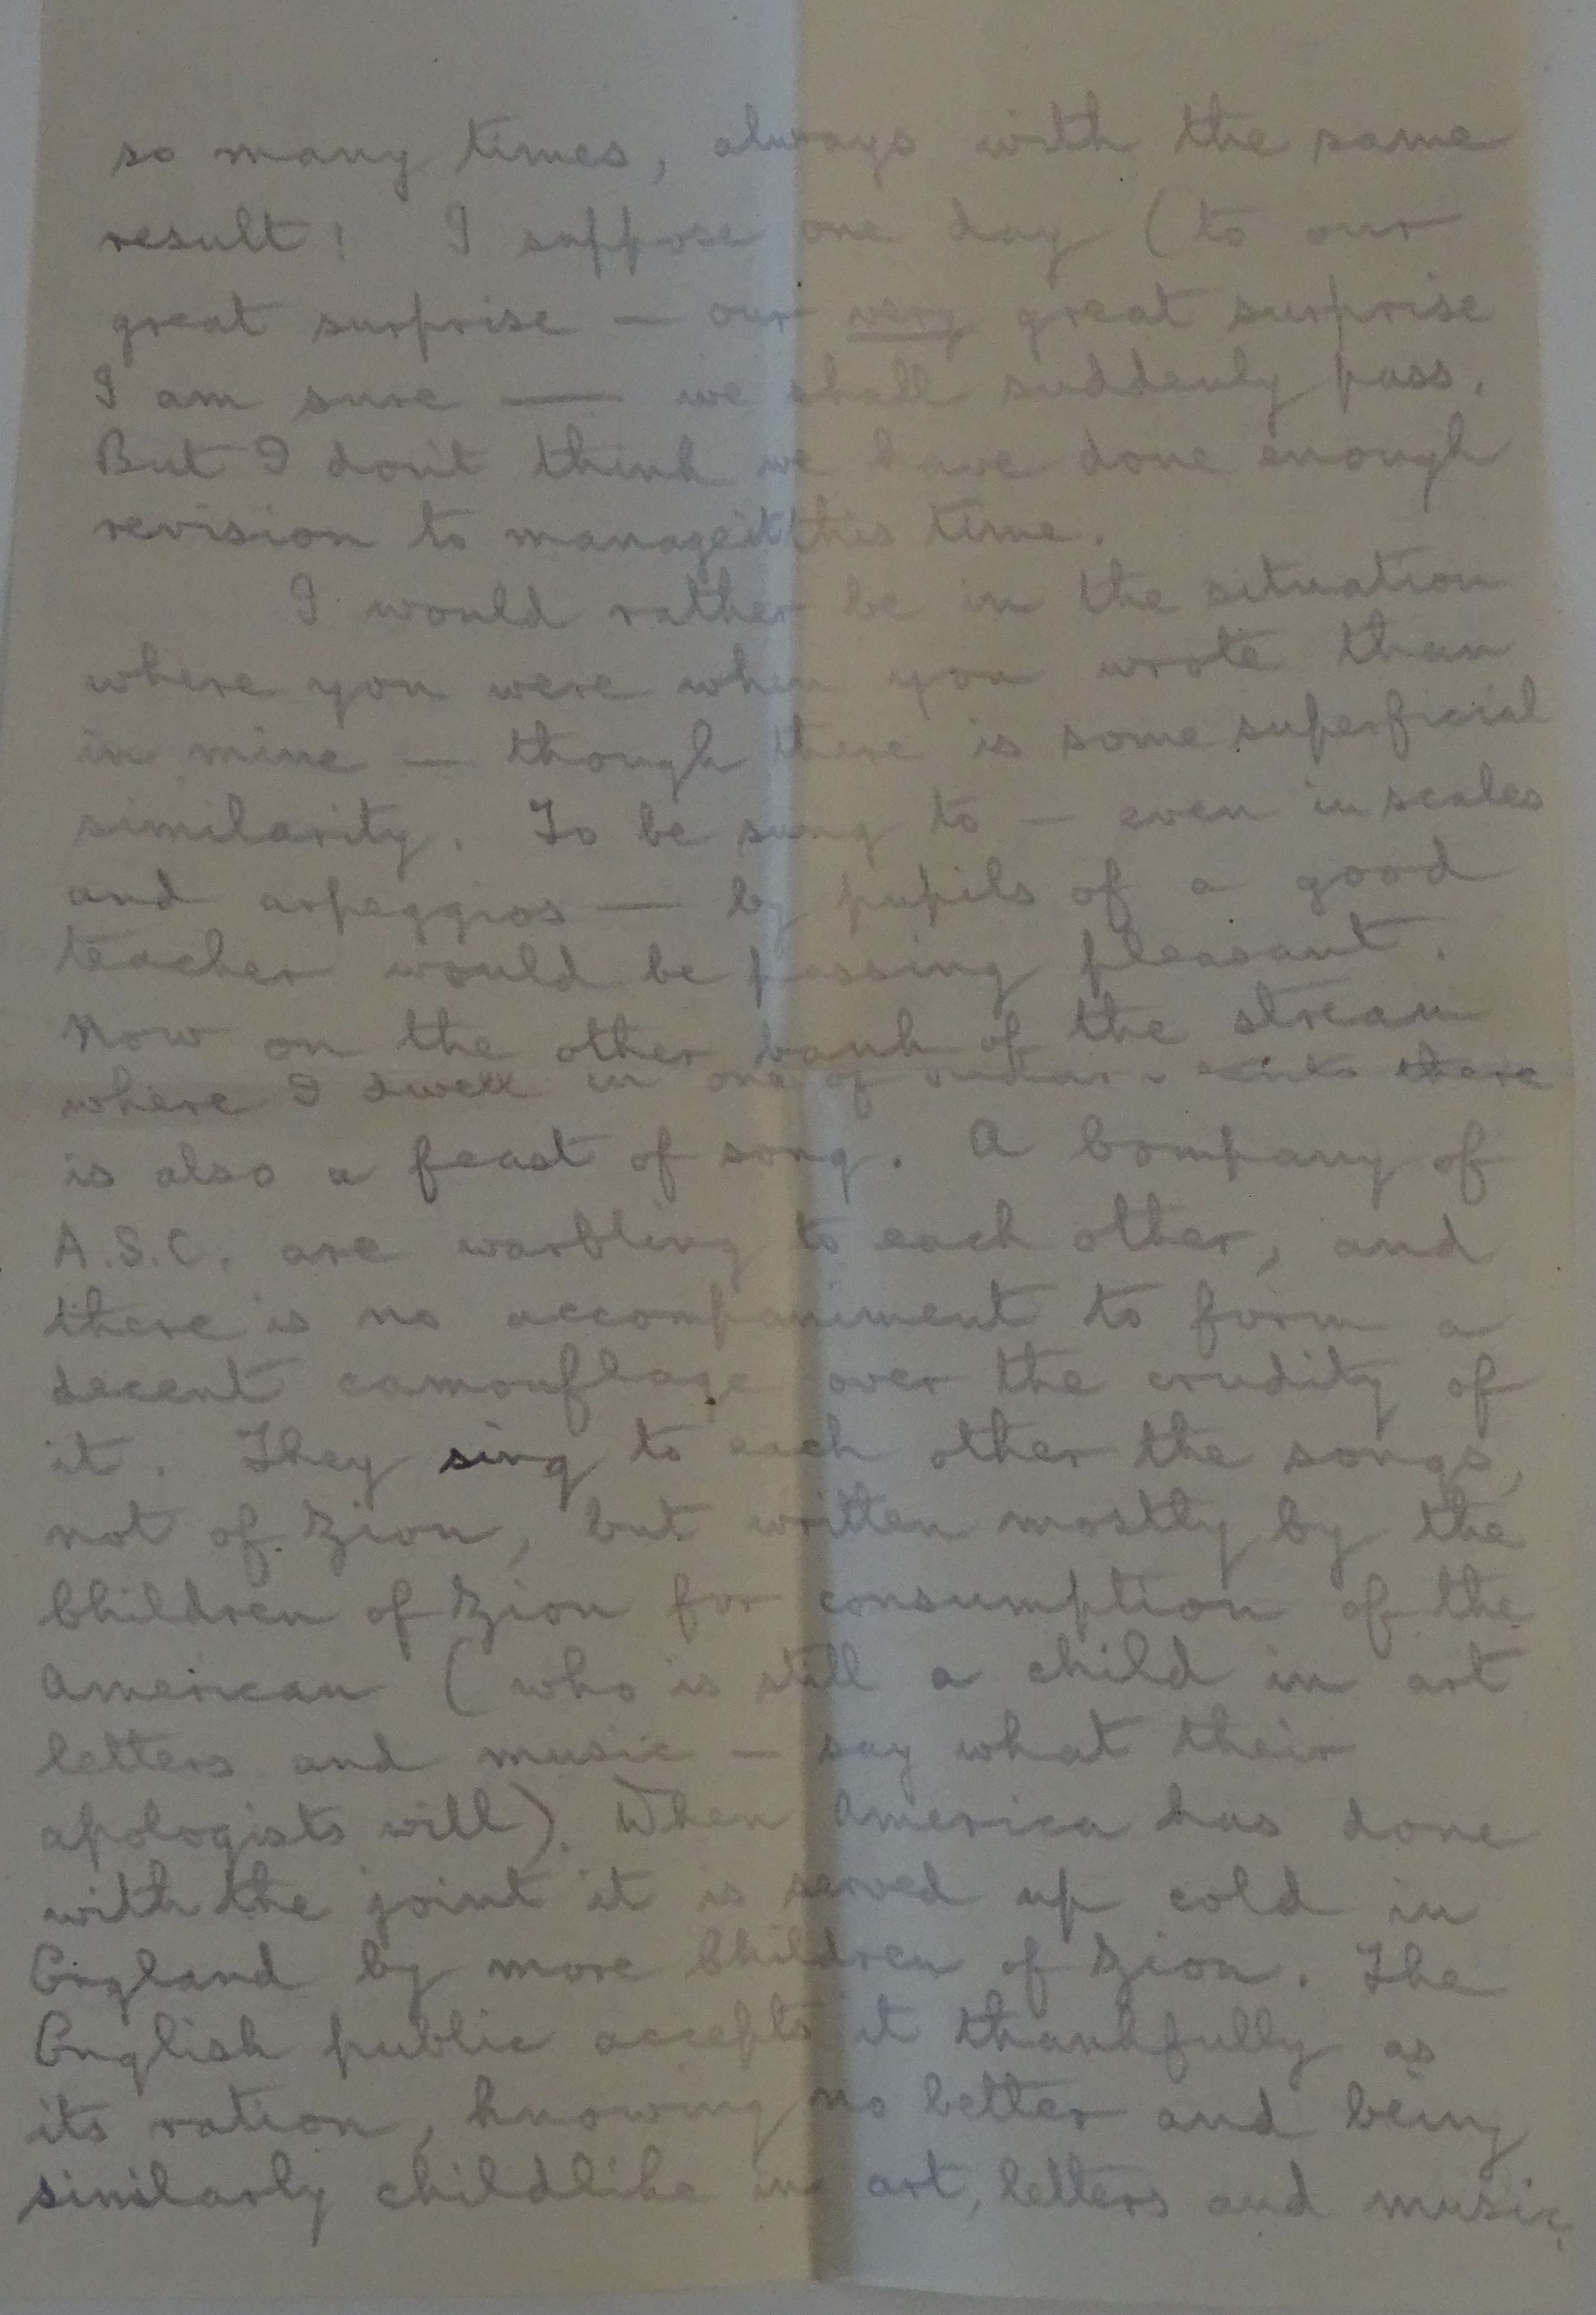 so many times, always with the same
result! I suppose one day (to our
great surprise — our very great surprise
I am sure — we shall suddenly pass.
But I don't think we have done enough
revision to manage it this time.
I would rather be in the situation
where you were when you wrote than
in mine — though there is some superficial
similarity. To be sung to — even in scales
and arpeggios — by pupils of a good
teacher would be passing pleasant.
Now on the other bank of the stream
where I dwell in one of there
is also a feast of song. A Company of
A.S.C. are warbling to each other, and
there is no accompaniment to form a
decent camouflage over the crudity of
it. They sing to each other the songs,
not of Zion, but written mostly by the
Children of Zion for consumption of the
American (who is still a child in art
letters and music — say what their
apologists will). When America has done
with the joint it is served up cold in
England by more Children of Zion. The
English public accepts it thankfully as
its ration, knowing no better and being
similarly childlike in art, letters and music.